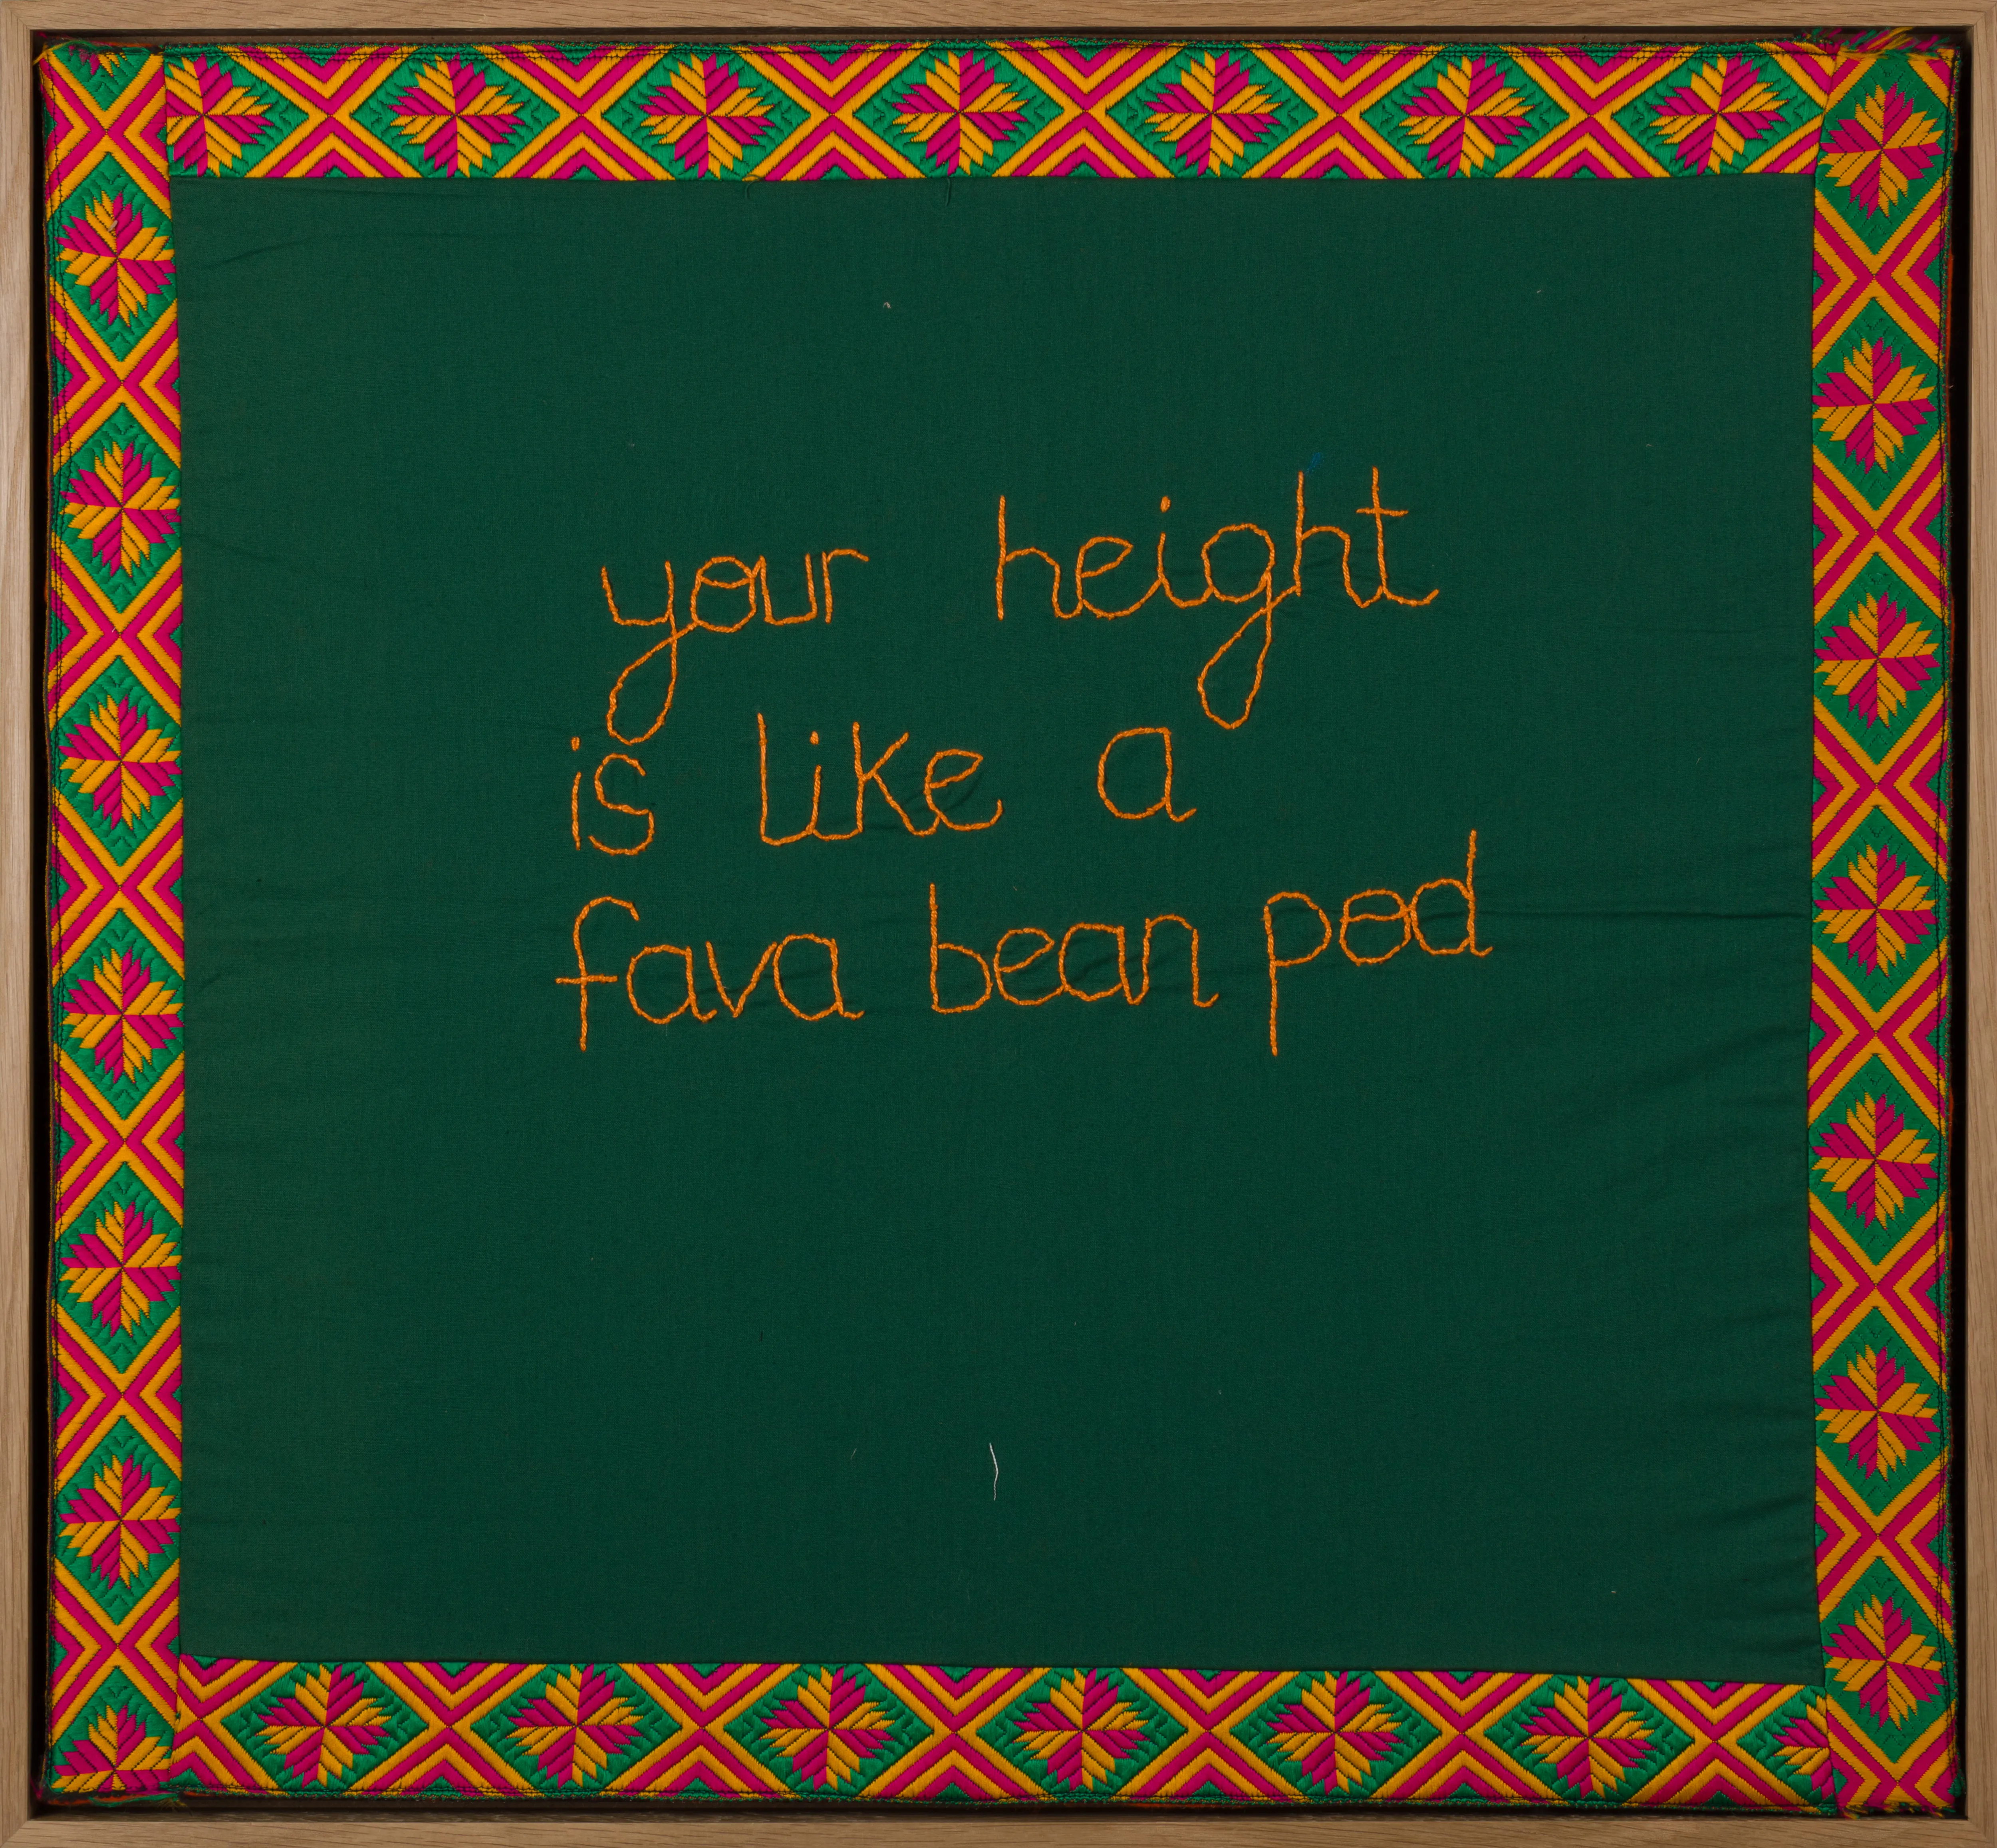 your height
is like a
fava bean pod